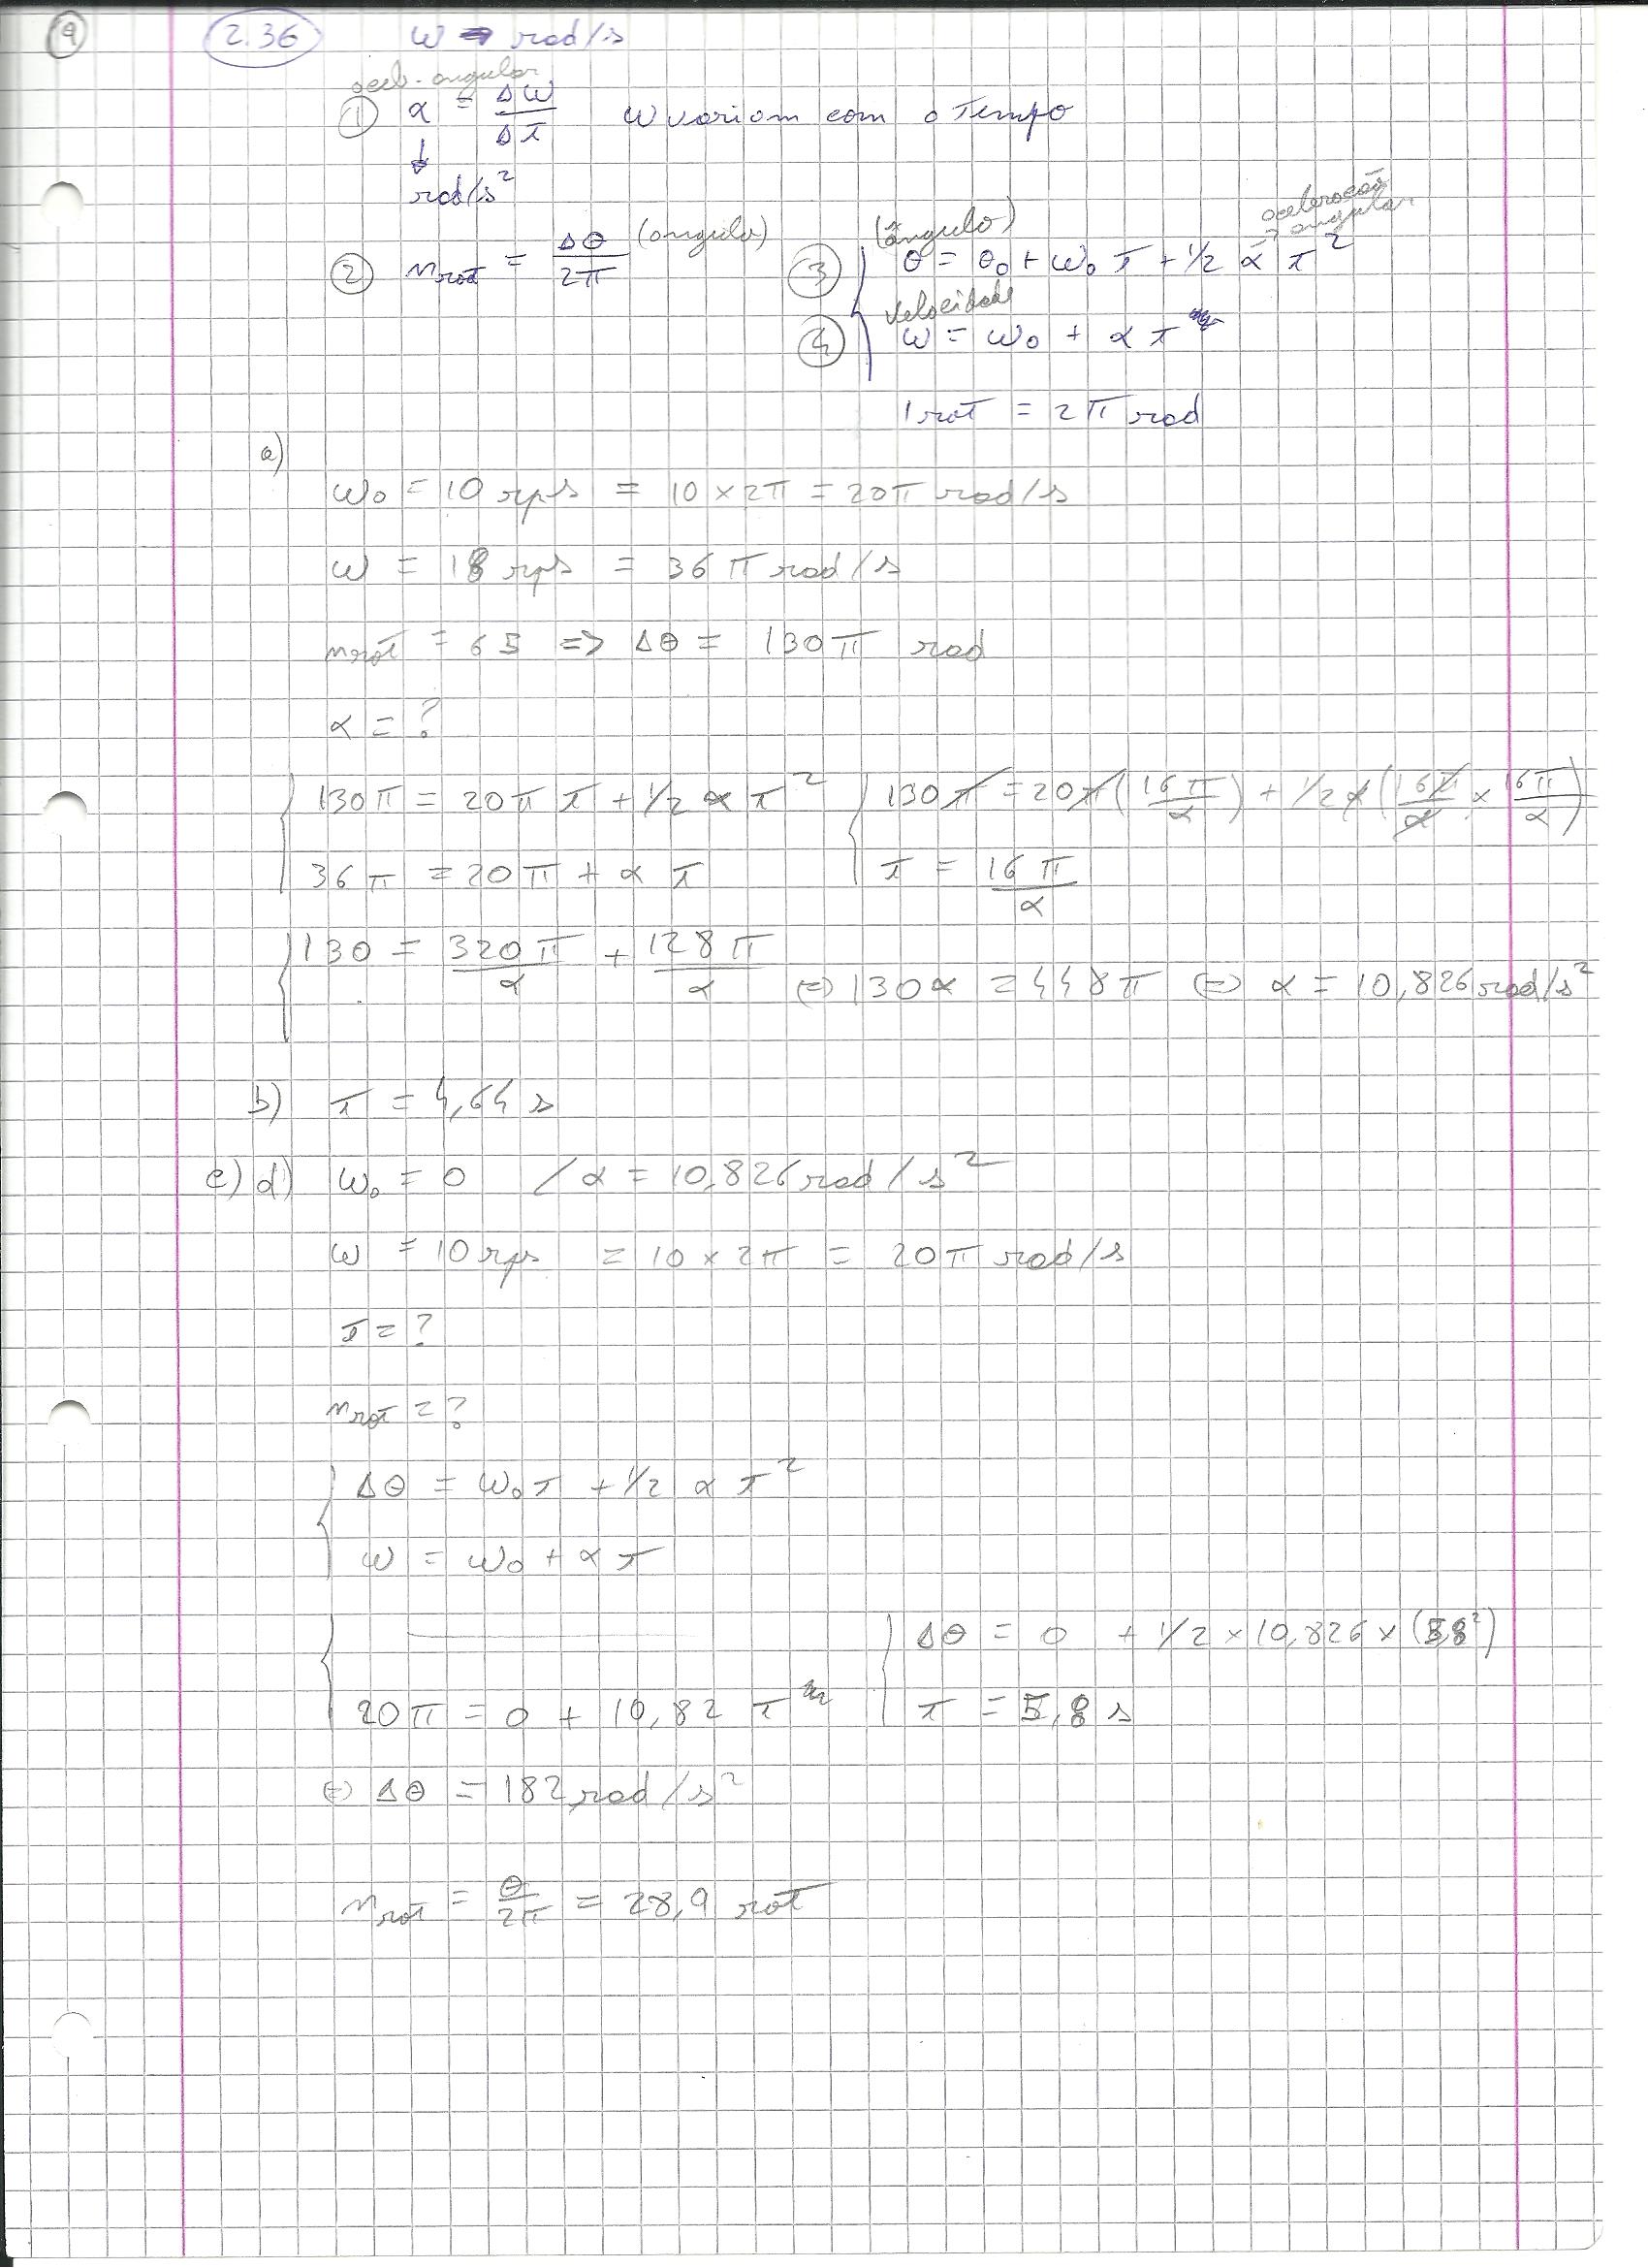 9 2.36 ω → rad/s
acel. angular
① α = Δω/Δt ω variam com o Tempo
↓
rad/s²
② nrot = Δθ/2π (angulo)
(ângulo) aceleração angular
③ θ = θ0 + ω0 t + 1/2 α t²
velocidade
④ ω = ω0 + α t
1 rot = 2π rad
a)
ω0 = 10 rps = 10 × 2π = 20π rad/s
ω = 18 rps = 36π rad/s
nrot = 65 => Δθ = 130π rad
α = ?
130π = 20π t + 1/2 α t² 130π = 20π(16π/α) + 1/2 α (16π/α × 16π/α)
36π = 20π + α t t = 16π/α
130 = 320π/α + 128π/α (=) 130α = 448π (=) α = 10,826 rad/s²
b) t = 4,64 s
c) d) ω0 = 0 / α = 10,826 rad/s²
ω = 10 rps = 10 × 2π = 20π rad/s
t = ?
nrot = ?
Δθ = ω0 t + 1/2 α t²
ω = ω0 + α t
Δθ = 0 + 1/2 × 10,826 × (5,8²)
20π = 0 + 10,82 t t = 5,8 s
(=) Δθ = 182 rad/s²
nrot = θ/2π = 28,9 rot